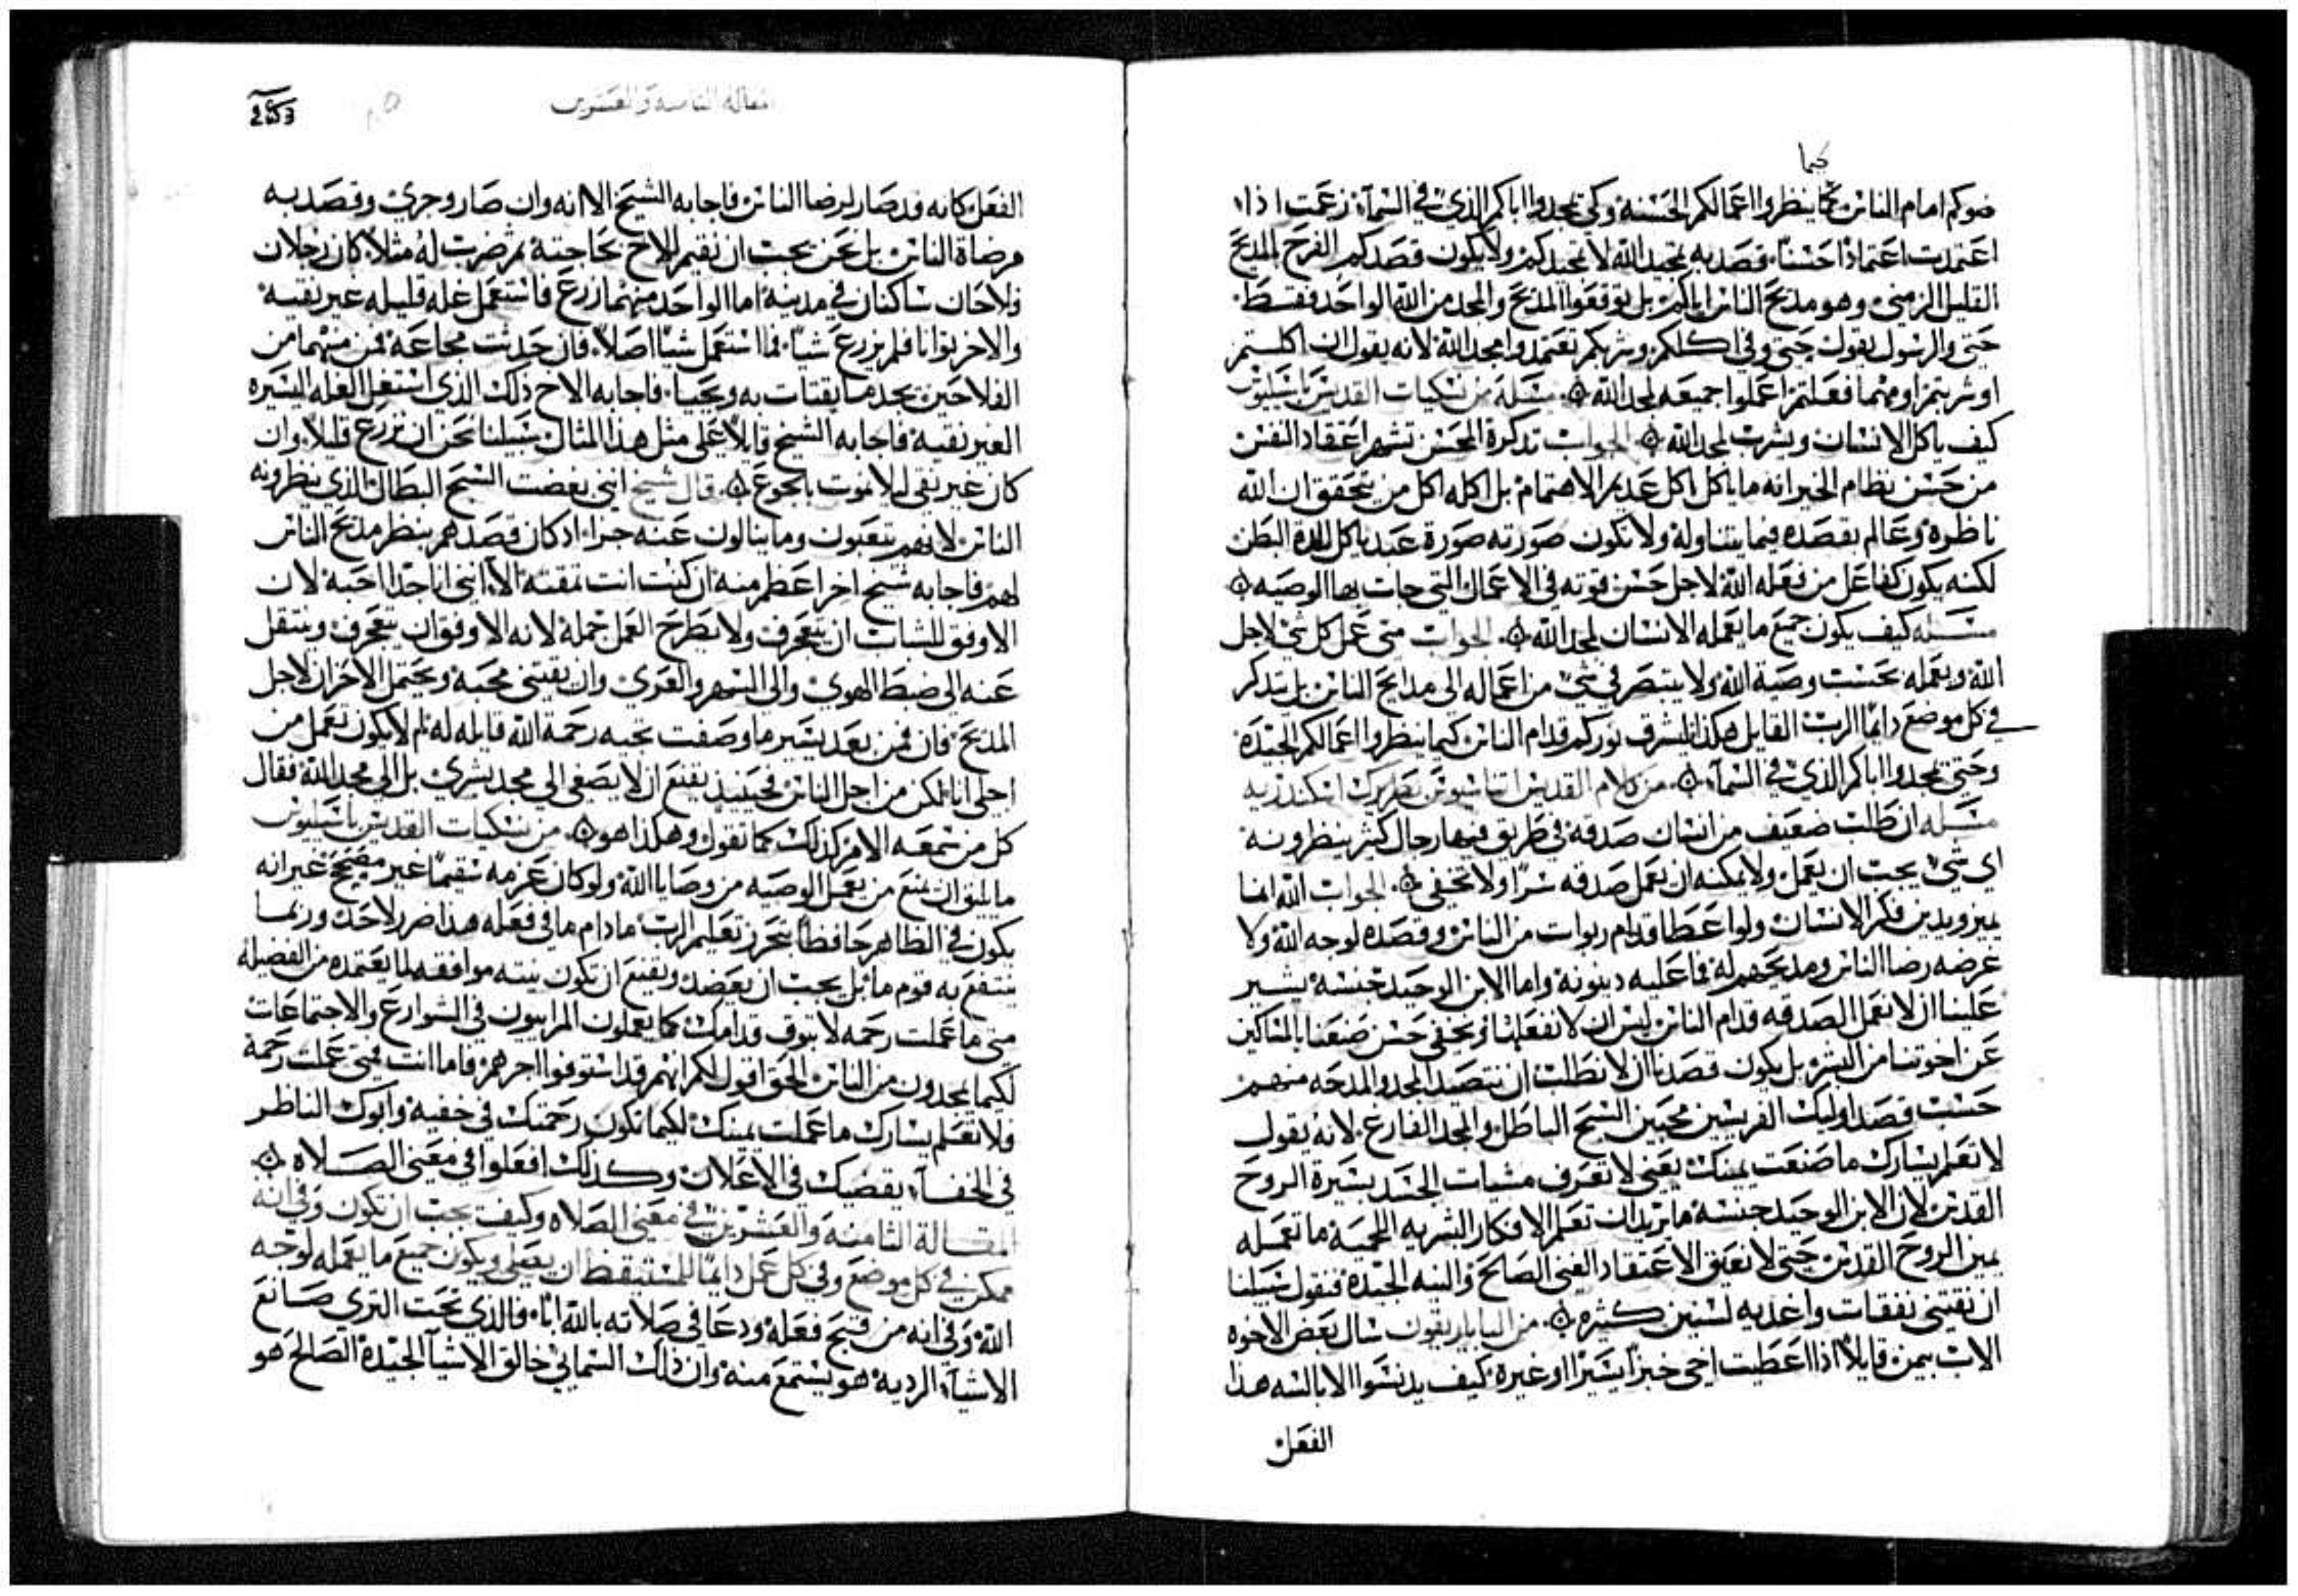 كيما
ضوكم امام الناس كما ينظروا اعمالكم الحسنة وكي يمجدوا اباكم الذي في السمآء زعمت اذا
اعتمدت اعتمادًا حسنًا فصد به تمجيد الله لا تمجيدكم ولا يكون قصدكم الفرح المديح
القليل الزمني وهو مديح الناس اياكم بل توقعوا المديح والمجد من الله الواحد فقط
حتى والرسول يقول حتى وفي اكلكم وشربكم تعتمدوا مجد الله لانه يقول ان اكلتم
او شربتم او مهما فعلتم اعملوا جميعه لمجد الله مسله من نسكيات القديس باسيليوس
كيف ياكل الانسان ويشرب لمجد الله الجواب تذكرة المحسن تشهر اعتقاد النفس
من حسن نظام الخير انه ما ياكل اكل عديم الاهتمام بل اكله اكل من يتحقق ان الله
ناظره وعالم بقصده فيما يتناوله ولا تكون صورته صورة عبد ياكل للذة البطن
لكنه يكون كفاعل من فعله الله لاجل حسن قوته في الاعمال التي جات بها الوصيه
مسله كيف يكون جميع ما يعمله الانسان لمجد الله الجواب متى عمل كل شي لاجل
الله ويعمله بحسب وصية الله ولا يتبصر في شي من اعماله الى مدايح الناس بل يتذكر
في كل موضع دايمًا الرب القايل هكذا ليشرق نوركم قدام الناس كيما ينظروا اعمالكم الجيدة
وحتى يمجدوا اباكم الذي في السمآء من كلام القديس اتناسيوس بطريرك اسكندريه
مسله ان طلب ضعيف من انسان صدقة في طريق فيها رجال كثير ينظرونه
اي شي يجب ان يعمل ولا يمكنه ان يعمل صدقه سرًا ولا تخفى الجواب الله انما
يميز ويدين فكر الانسان ولو اعطا قدام ربوات من الناس وقصده لوجه الله ولا
غرضه رضا الناس ومديحهم له فما عليه دينونه واما الابن الوحيد جنسه يشير
علينا ان لا نعمل الصدقه قدام الناس ليس ان لا نفعلها او نخفي حسن صنعنا بالمساكين
عن اخوتنا من البشر بل يكون قصدنا ان لا نطلب ان نتصيد المجد والمدحه منهم
حسب قصد اوليك الفريسين محبين السبح الباطل والمجد الفارغ لانه يقول
لا تعلم يسارك ما صنعت يمينك يعني لا تعرف مشيات الجسد بسيرة الروح
القدس لان الابن الوحيد جنسه ما يريد ان تعلم الافكار البشريه اللحمية ما تعمله
يمين الروح القدس حتى لا نعيق الاعتقاد الغني الصالح والنيه الجيدة فنقول سبيلنا
ان نقتني نفقات واغديه لسنين كثيره من الباباريقون سال بعض الاخوه
الاب بيمن قايلاً اذا اعطيت اخي خبزًا يسيرًا او غيره كيف يدنسوا الابالسه هذا
الفعل
المقالة الثامنه والعشرون
الفعل كانه قد صار لرضا الناس فاجابه الشيخ الا انه وان صار وجرى وقصد به
مرضاة الناس بل نحن يجب ان نقيم للاخ بحاجته ثم ضرب له مثلاً كان رجلان
فلاحان ساكنان في مدينه اما الواحد منهما زرع فاستعمل غله قليله غير نقيه
والاخر توانا فلم يزرع شيًا فما استعمل شيًا اصلاً فان حدثت مجاعة فمن منهما من
الفلاحين يجد ما يقتات به ويحيا فاجابه الاخ ذلك الذي استغل الغله اليسيره
الغير نقيه فاجابه الشيخ قايلاً على مثل هذا المثال سبيلنا نحن ان نزرع قليلاً وان
كان غير نقي لالا نموت بالجوع قال شيخ انني بغضت السبح البطال الذي ينظرونه
الناس لانهم يتعبون وما ينالون عنه جزا اذ كان قصدهم بنظر مديح الناس
لهم فاجابه شيخ اخر اعظم منه ان كنت انت تمقته الا انني انا جدا احبه لان
الاوفق للشاب ان يتعجرف ولا يطرح العمل جملة لانه الاوفق ان يتعجرف وينتقل
عنه الى ضبط الهوى والى السهر والعري وان يقتني محبة ويحتمل الاحزان لاجل
المديح فان فمن بعد يسير ما وصفت تجيه رحمة الله قايله له لم لا يكون تعمل من
اجلي انا لكن من اجل الناس فحينيذ يقنع ان لا يصغي الى مجد بشري بل الى مجد الله فقال
كل من سمعه الامر كذلك كما تقول وهكذا هو من نسكيات القديس باسيليوس
ما يليق ان يمنع من يعمل الوصيه من وصايا الله ولو كان عزمه سقيمًا غير صحيح غير انه
يكون في الظاهر حافظًا بتحرز تعليم الرب ما دام ما في فعله هذا ضرر لاحد وربما
ينتفع به قوم ما بل يجب ان يعضد ويقنع ان تكون نيته موافقه لما يعتمده من الفضيله
متى ما عملت رحمه لا تبوق قدامك كما يعملون المراييون في الشوارع والاجتماعات
لكيما يمجدون من الناس الحق اقول لكم انهم قد استوفوا اجرهم فاما انت فمتى عملت رحمة
فلا تعلم يسارك ما عملت يمينك لكيما تكون رحمتك في خفيه وابوك الناظر
في الخفآء يقضيك في الاعلان وكذلك افعلوا في معنى الصلاه
المقالة الثامنه والعشرين في معنى الصلاه وكيف يجب ان تكون وفي انه
ممكن في كل موضع وفي كل عمل دايمًا للمستيقظ ان يصلي ويكون جميع ما يعمله لوجه
الله وفي انه من قبح فعله ودعا في صلاته بالله ابًا فالذي تحت الثرى صانع
الاشيآء الرديه هو يستمع منه وان ذلك السماني خالق الاشيآ الجيدة الصالح هو